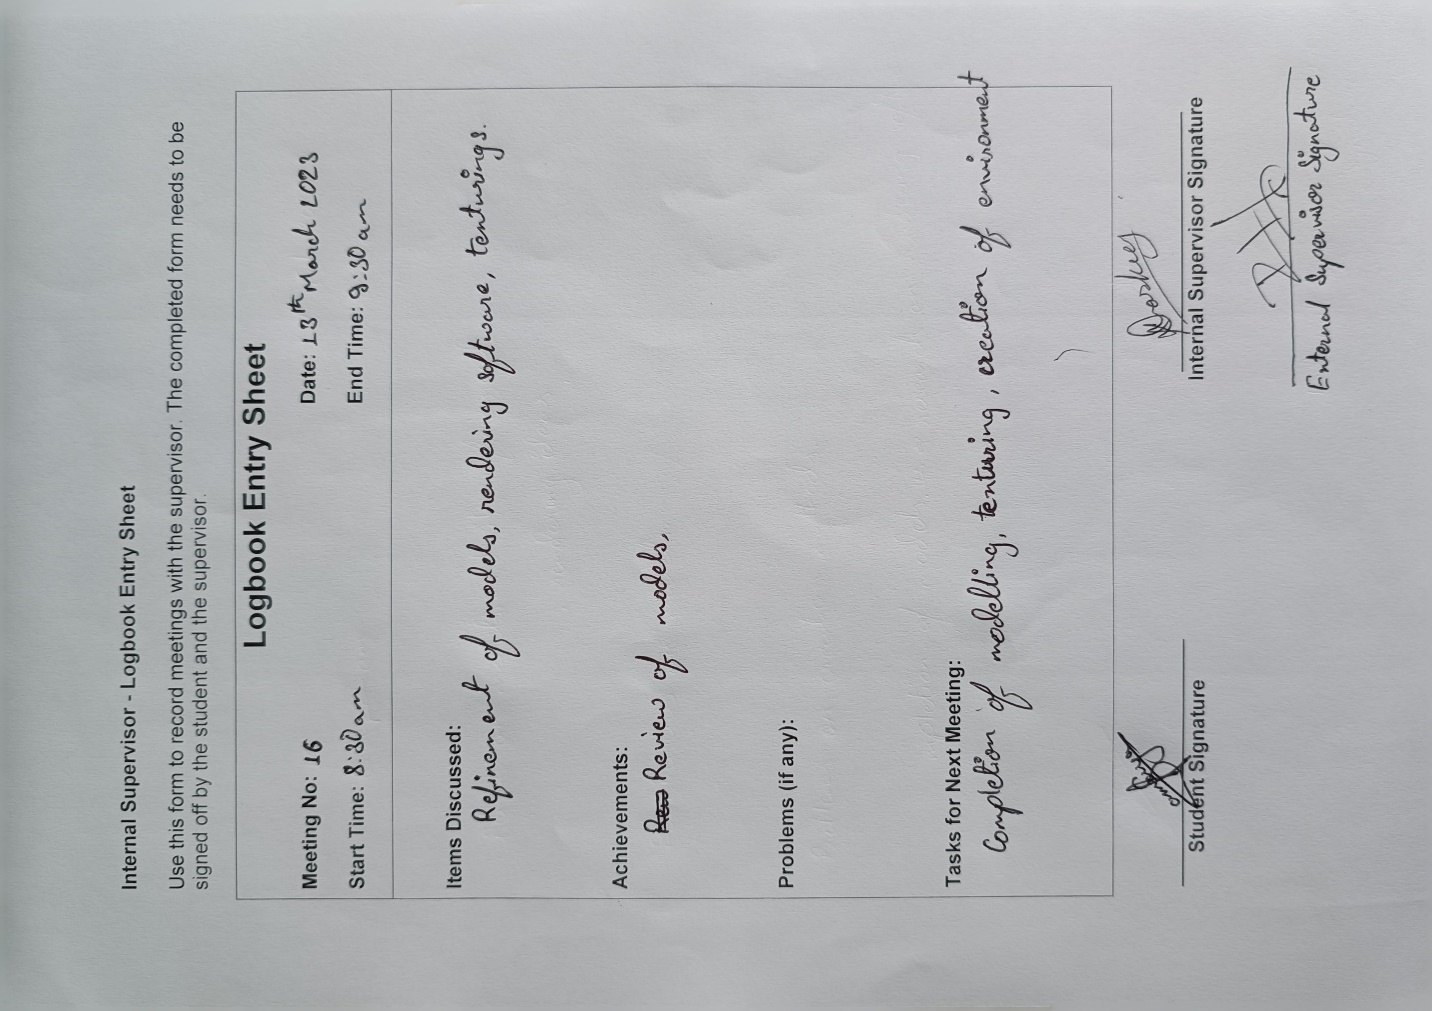 Internal Supervisor - Logbook Entry Sheet
Use this form to record meetings with the supervisor. The completed form needs to be
signed off by the student and the supervisor.
Logbook Entry Sheet
Meeting No: 16 Date: 13th March 2023
Start Time: 8:30am End Time: 9:30am
Items Discussed:
Refinement of models, rendering software, tenturings.
Achievements:
Review of models,
Problems (if any):
Tasks for Next Meeting:
Completion of modelling, tenturing, creation of environment
Student Signature Internal Supervisor Signature
External Supervisor Signature